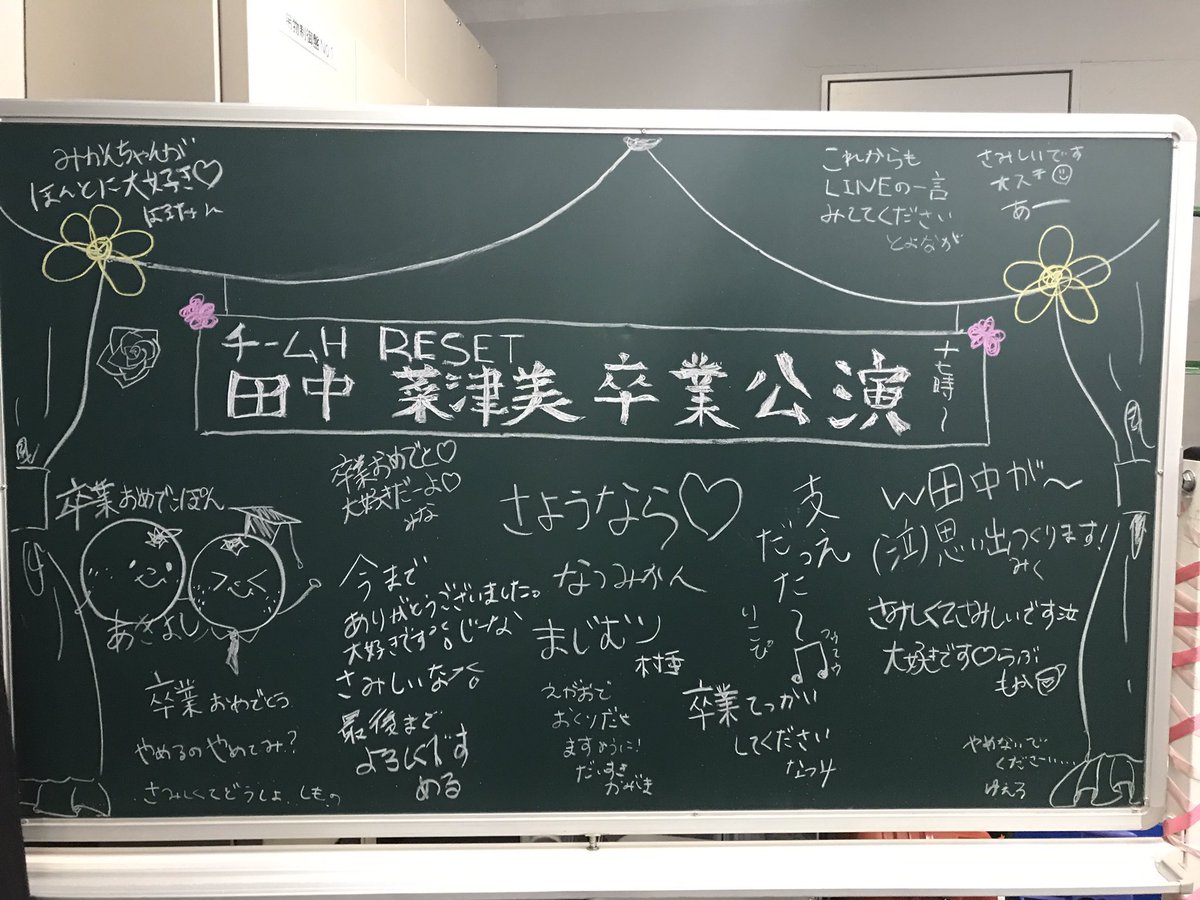 みかんちゃんが
ほんとに大好き♡
はるちゃん
これからも
LINEの一言
みててください
とよなが
さみしいです
大スキ
あー
チームH RESET
田中 菜津美 卒業公演
十七時〜
卒業おめでと♡
大好きだーよ♡
みな
卒業おめでこぽん
あきよし
卒業おめでとう
やめるのやめてみ?
さみしくてどうしよ しもの
今まで
ありがとうございました。
大好きです じーな
さみしいな
最後まで
よろしくです
める
さようなら♡
なつみかん
まじむり
村重
えがおで
おくりだせ
ますように!
だいすき
かみき
支え
だって
りこぴ
卒業てっかい
してください
なつ
W田中が〜
(泣)思い出つくります!
みく
さみしくてさみしいです泣
大好きです♡らぶ
もか
やめないで
ください……